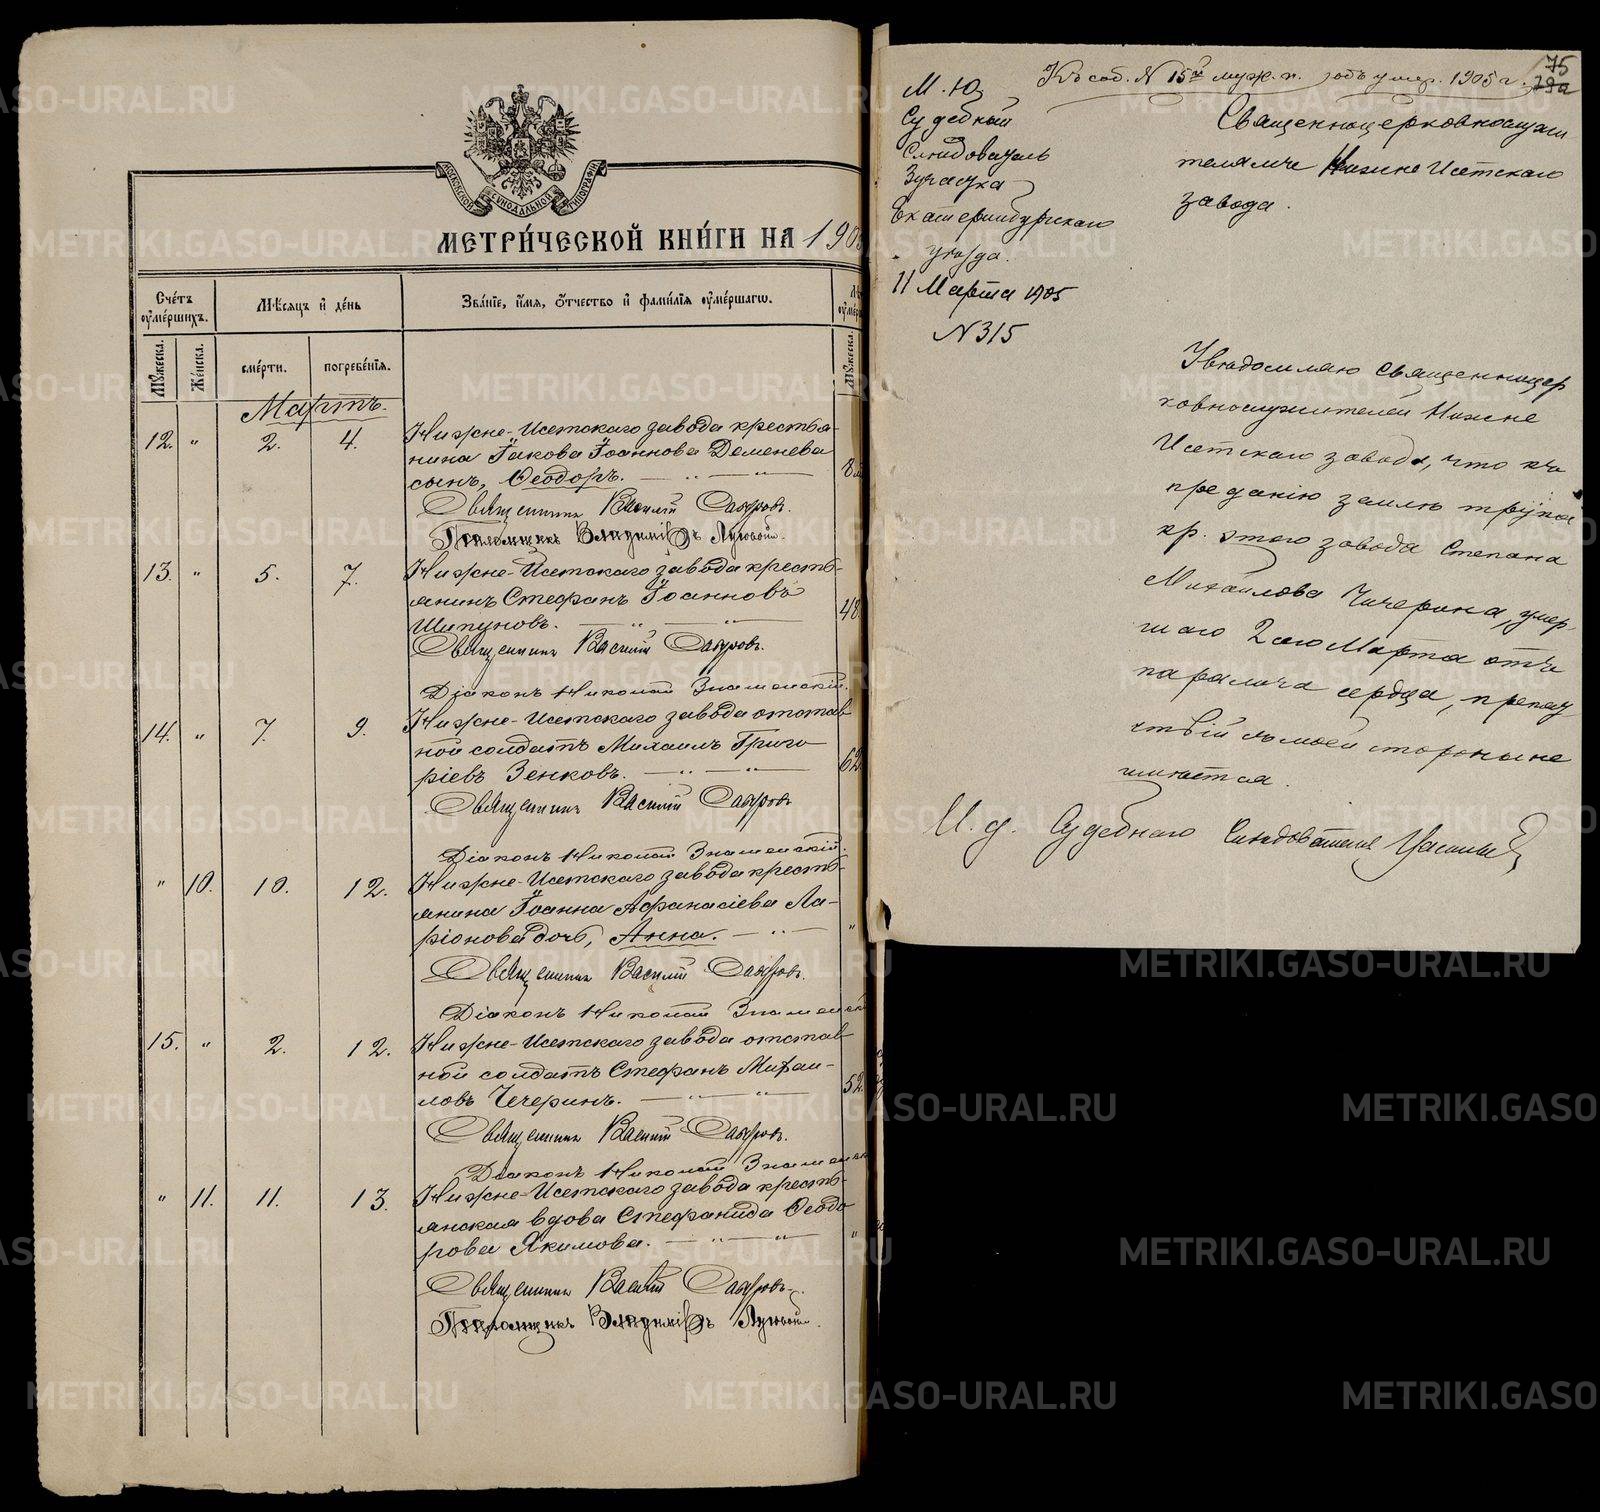 МОСКОВСКОЙ СѴНОДАЛЬНОЙ ТИПОГРАФІИ
МЕТРИ́ЧЕСКОЙ КНИ́ГИ НА 190
Сче́тъ ᲂу҆ме́ршихъ.
Мѣ́сяцъ и҆ де́нь
Зва́нїе, и҆́мя, ѻ҆́тчество и҆ фами́лїя ᲂу҆ме́ршагѡ.
Мꙋ́жеска.
Же́нска.
сме́рти.
погребе́нїѧ.
Мꙋ́жеска.
Мартъ.
12. " 2. 4. Нижне-Исетскаго завода крестья-
нина Іакова Іоаннова Деменева
сынъ, Ѳеодоръ. — " — " 8
Священникъ Василій
Псаломщикъ Владиміръ Луговой.
13. " 5. 7. Нижне-Исетскаго завода кресть-
янинъ Стефанъ Іоанновъ
Шипуновъ. — " — " 48
Священникъ Василій
Діаконъ Николай Знаменскій.
14. " 7. 9. Нижне-Исетскаго завода отстав
ной солдатъ Михаилъ Григо
ріевъ Зенковъ. — " — " 62
Священникъ Василій
Діаконъ Николай Знаменскій.
" 10. 10. 12. Нижне-Исетскаго завода кресть-
янина Іоанна Афанасіева Ла-
ріонова дочь, Анна. — " — "
Священникъ Василій
Діаконъ Николай Знаменск
15. " 2. 12. Нижне-Исетскаго завода отстав
ной солдатъ Стефанъ Михаи-
ловъ Чечеринъ. — " — " 52
Священникъ Василій
Діаконъ Николай Знаменск
" 11. 11. 13. Нижне-Исетскаго завода кресть-
янская вдова Стефанида Ѳеодо
рова Якимова. — " — " "
Священникъ Василій
Псаломщикъ Владиміръ Луговой.
Къ соб. № 15й муж. п. объ умер. 1905 г.
75
79а
М. Ю.
Судебный
Слѣдователь
3 участка
Екатеринбургскаго
уѣзда.
11 Марта 1905
№ 315
Священноцерковнослужи
телямъ Нижне Исетскаго
завода.
Увѣдомляю священноцер
ковнослужителей Нижне
Исетскаго завода, что къ
преданію землѣ трупа
кр. этого завода Степана
Михайлова Чичерина, умер
шаго 2 сего Марта отъ
паралича сердца, препят
ствій съ моей стороны не
имѣется.
И. д. Судебнаго Слѣдователя
METRIKI.GASO-URAL.RU